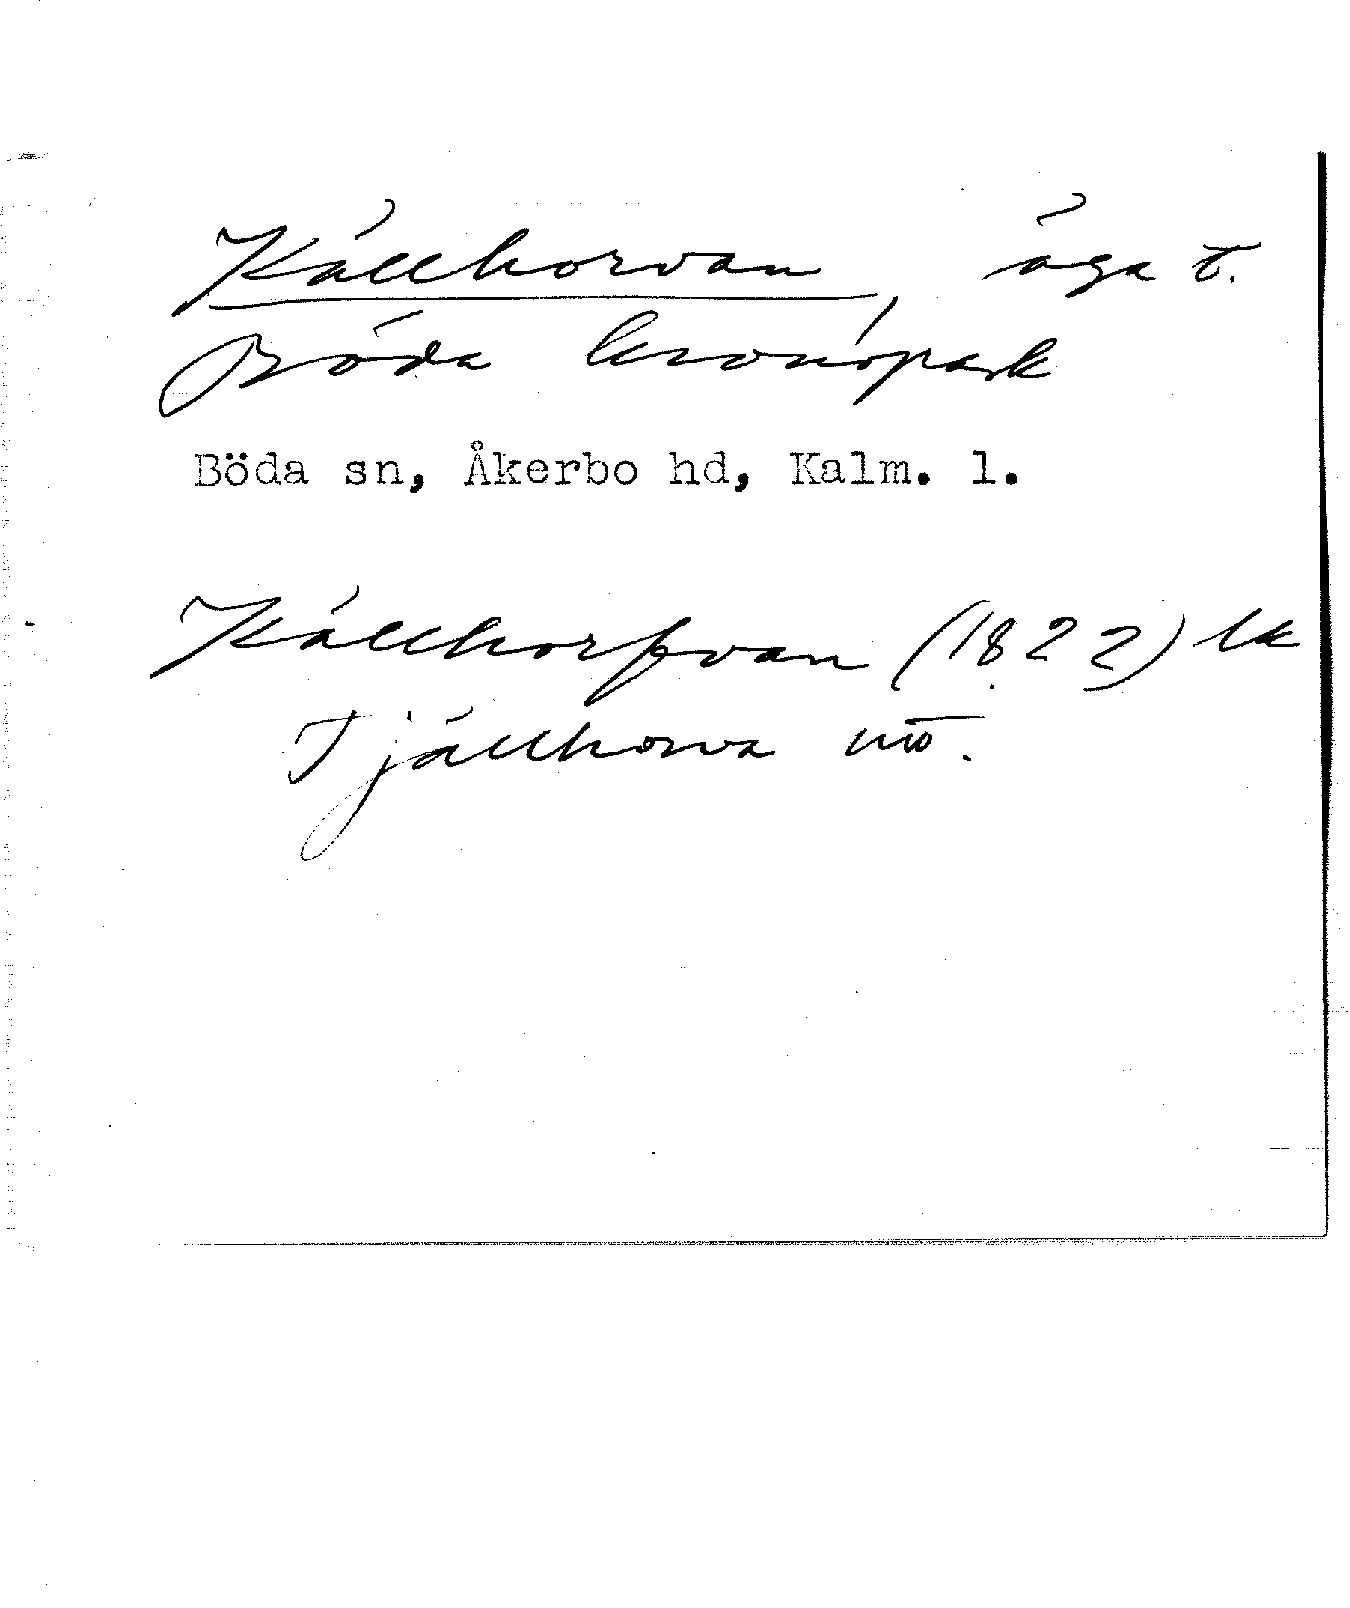 Källhorvan, äga t.
Böda kronopark
Böda sn, Åkerbo hd, Kalm. l.
Källhorfvan (1822) lk
Tjällhorva utt.